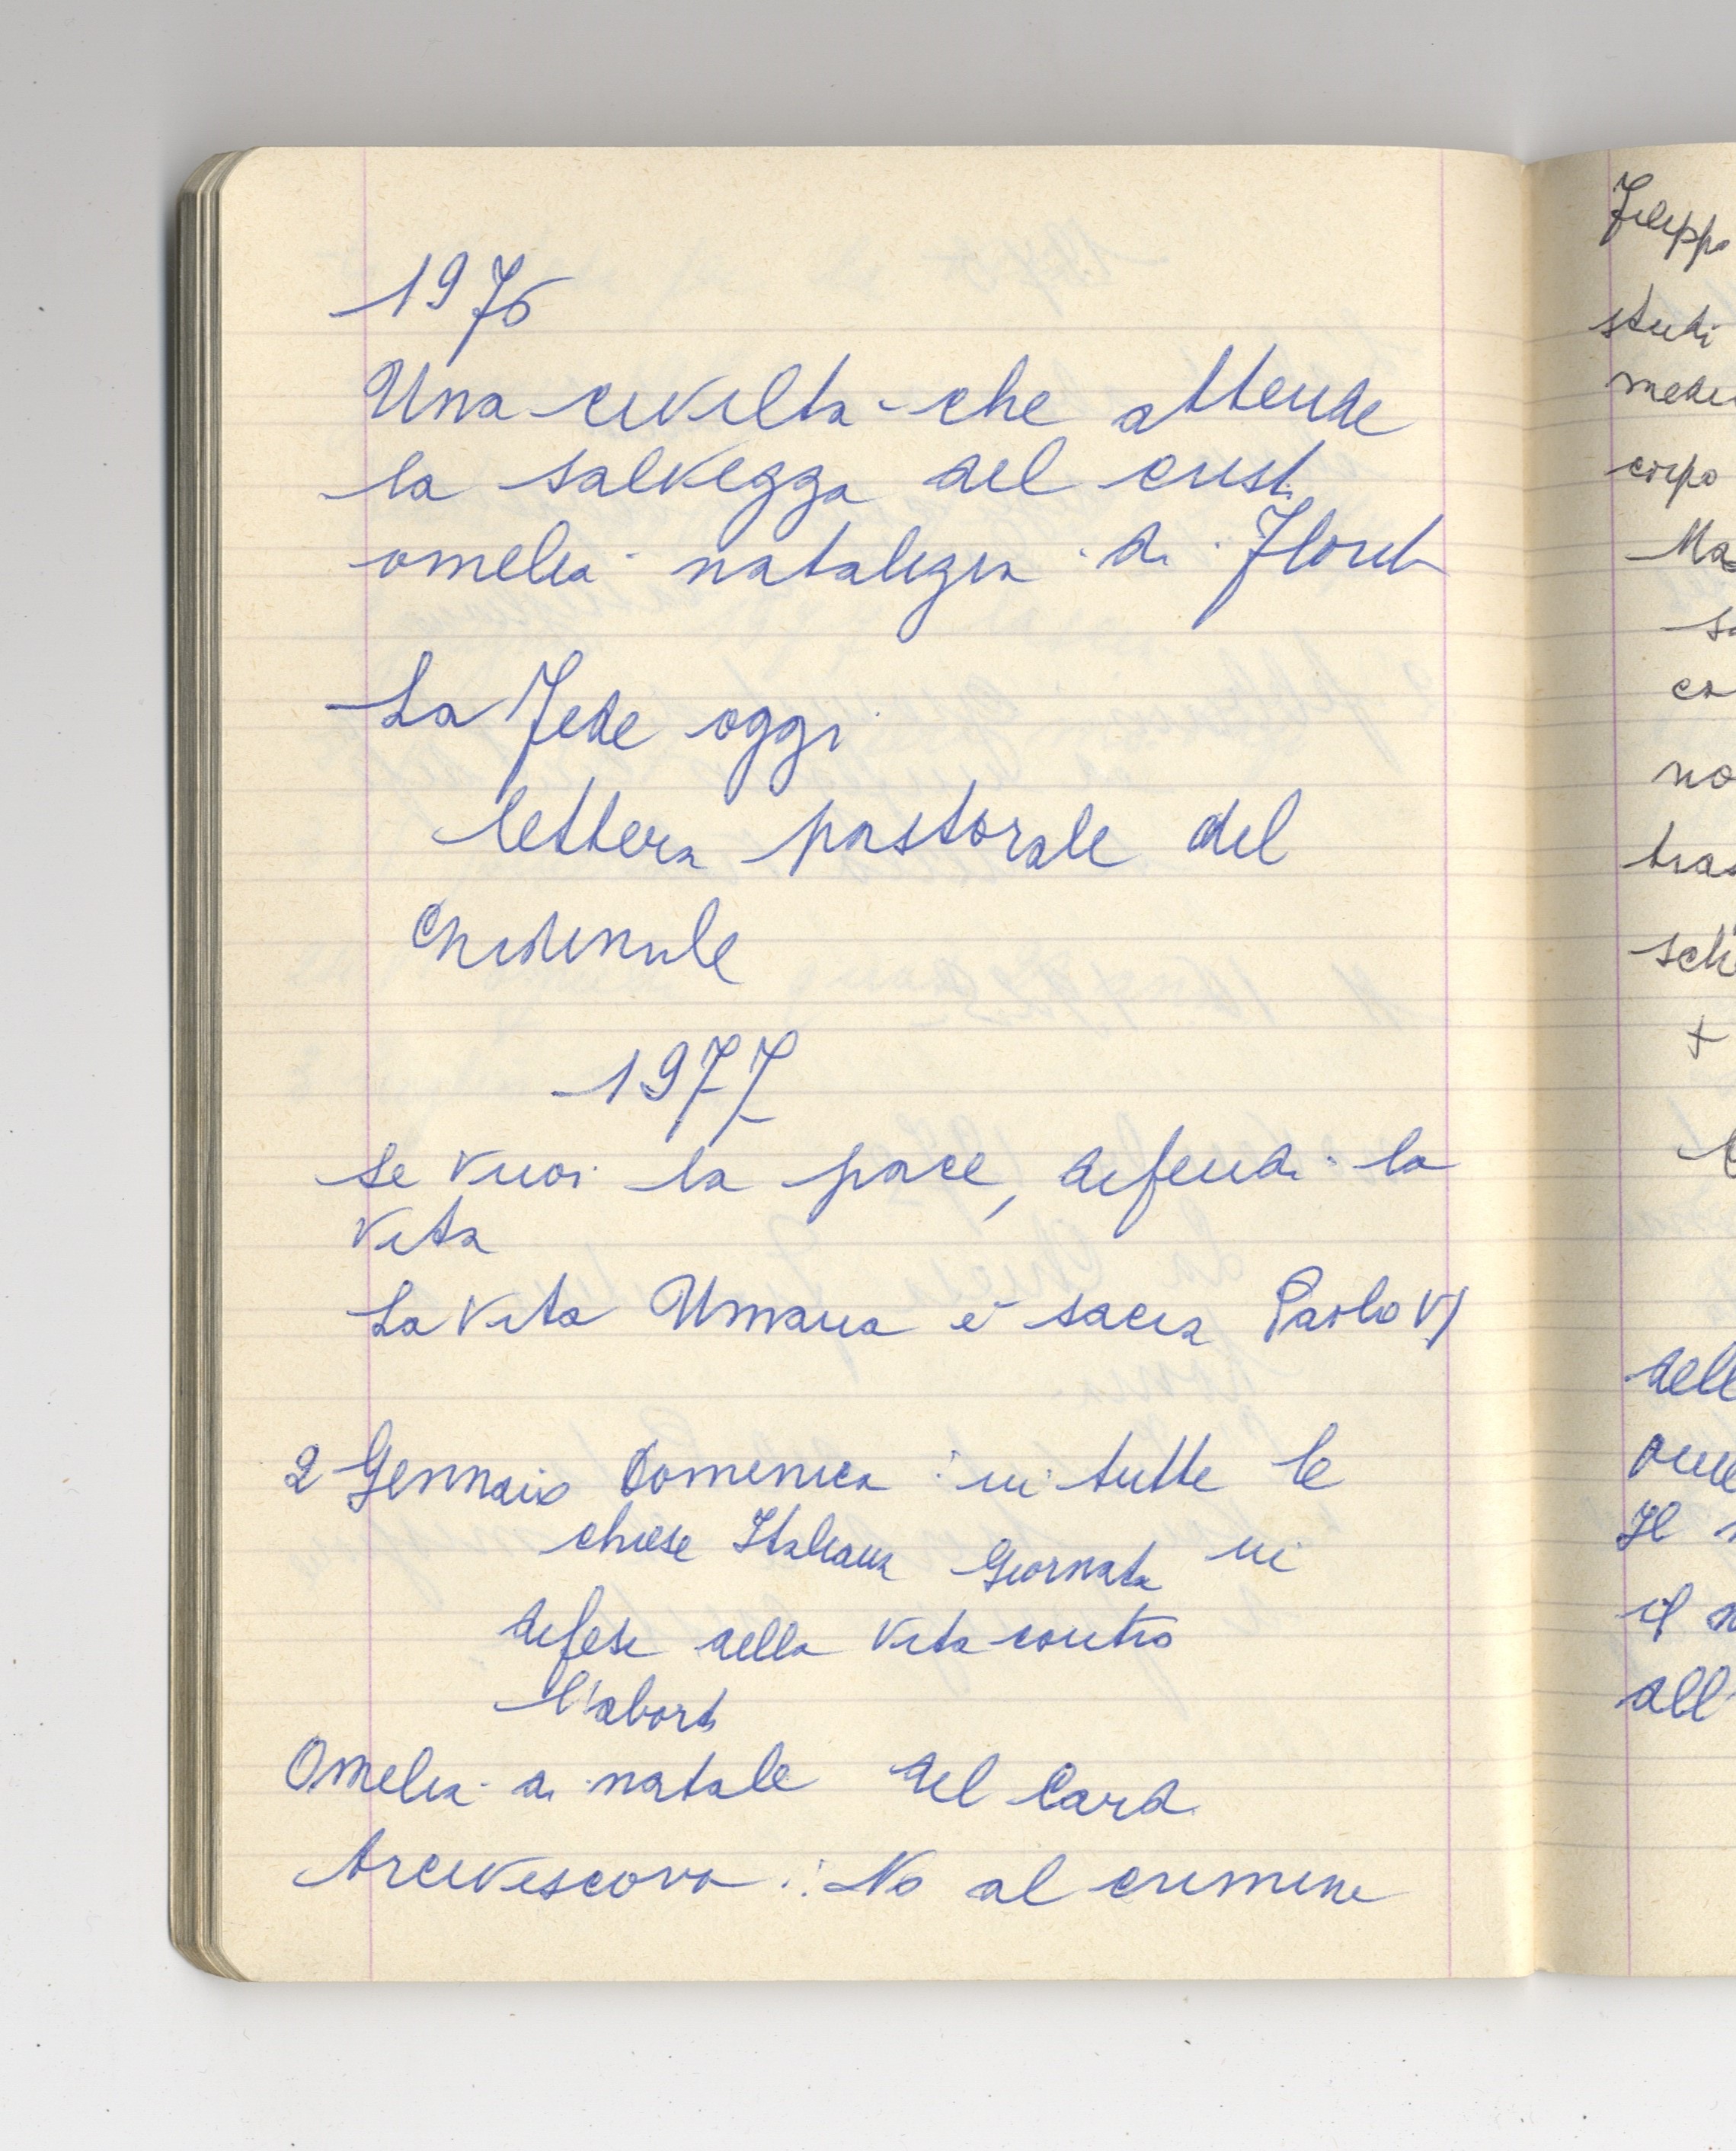 1976
Una civilta che attende
la salvezza del crist.
omelia natalizia di Florit
La Fede oggi
lettera pastorale del
Cardinale
1977
Se vuoi la pace, difendi la
vita
La vita Umana è sacra Paolo VI
2 Gennaio Domenica in tutte le
chiese Italiane Giornata in
difesa della vita contro
l'aborto
Omelia di natale del Card.
Arcivescovo : No al crimine
Filippo
studi
corpo
Ma
co
no
tras
+
dell
Il
il
all